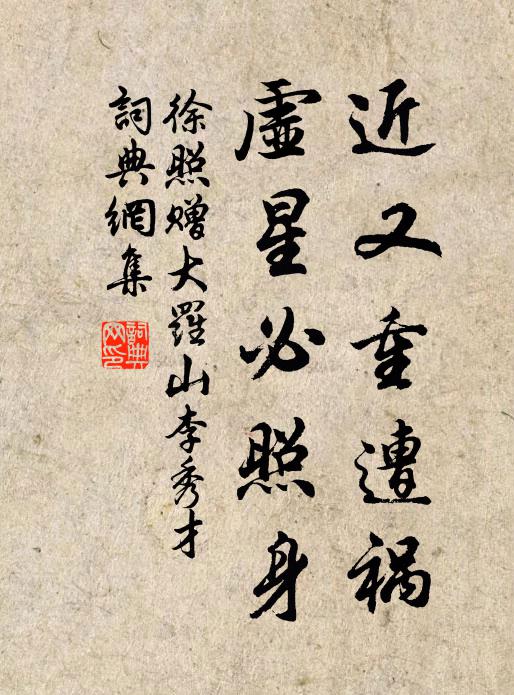 近又重遭禍
虛星必照身
徐照贈大羅山李秀才
詞典網集
詞典網印